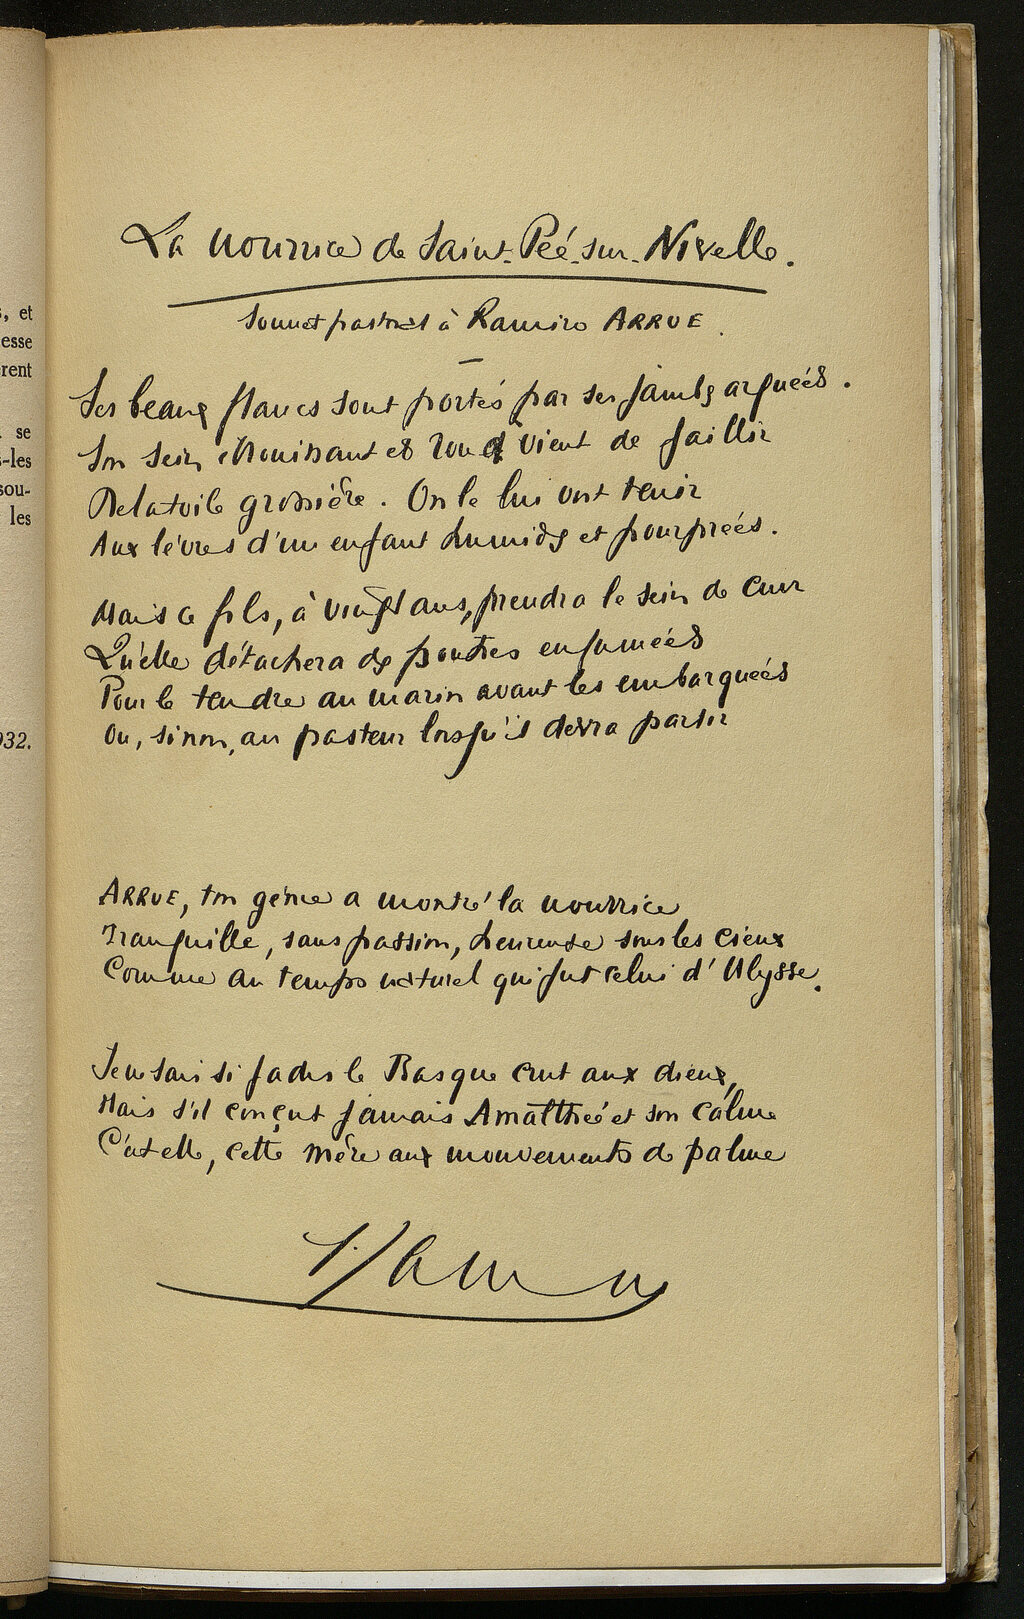 s, et
esse
rent
se
s-les
sou-
les
932.
La nourrice de Saint-Pée-sur-Nivelle.
Sonnet pastoral à Ramiro ARRUE.
Ses beaux flancs sont portés par ses jambes arquées.
Son sein nourrissant et rond vient de jaillir
De la toile grossière. On le lui voit tenir
Aux lèvres d'un enfant humides et pourprées.
Mais ce fils, à vingt ans, prendra le sein de cuir
Qu'elle détachera des poutres enfumées
Pour le tendre au marin avant les embarquées
Ou, sinon, au pasteur lorsqu'il devra partir
ARRUE, ton génie a montré la nourrice
Tranquille, sans passion, heureuse sous les cieux
Comme au temps naturel qui fut celui d'Ulysse.
Je ne sais si jadis le Basque crut aux dieux,
Mais s'il conçut jamais Amalthée et son calme
C'est elle, cette mère aux mouvements de palme